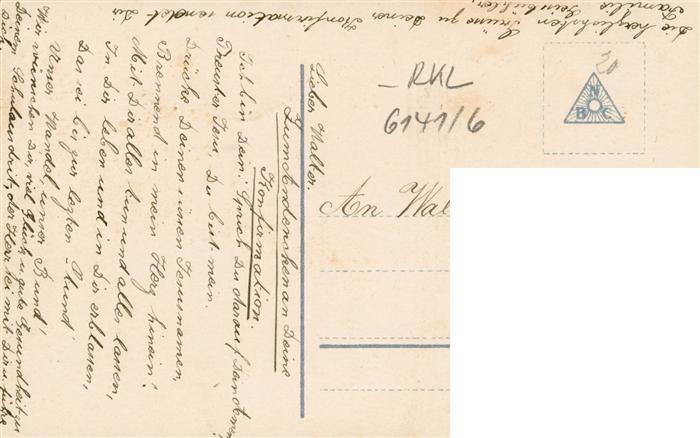 Die herzlichsten Grüsse zu Deiner Konfirmation sendet Dir
Familie
Lieber Walter.
Zum Andenken an Deine
Konfirmation.
Ich bin Dein: Sprich Du darauf Dein Amen,
Treuster Jesu, Du bist mein.
Drücke Deinen süssen Jesunamen,
Brennend in mein Herz hinein!
Mit Dir alles tun und alles lassen,
In Dir leben und in Dir erblassen,
Das sei bis zur letzten Stund'
Unser Wandel unser Bund!
Wir wünschen Dir viel Glück u. gute Gesundheit zu
Deinem Schulaustritt, der Herr sei mit Dir u. führe
Dich
RKL
6141/6
20
N
B C
An Wal